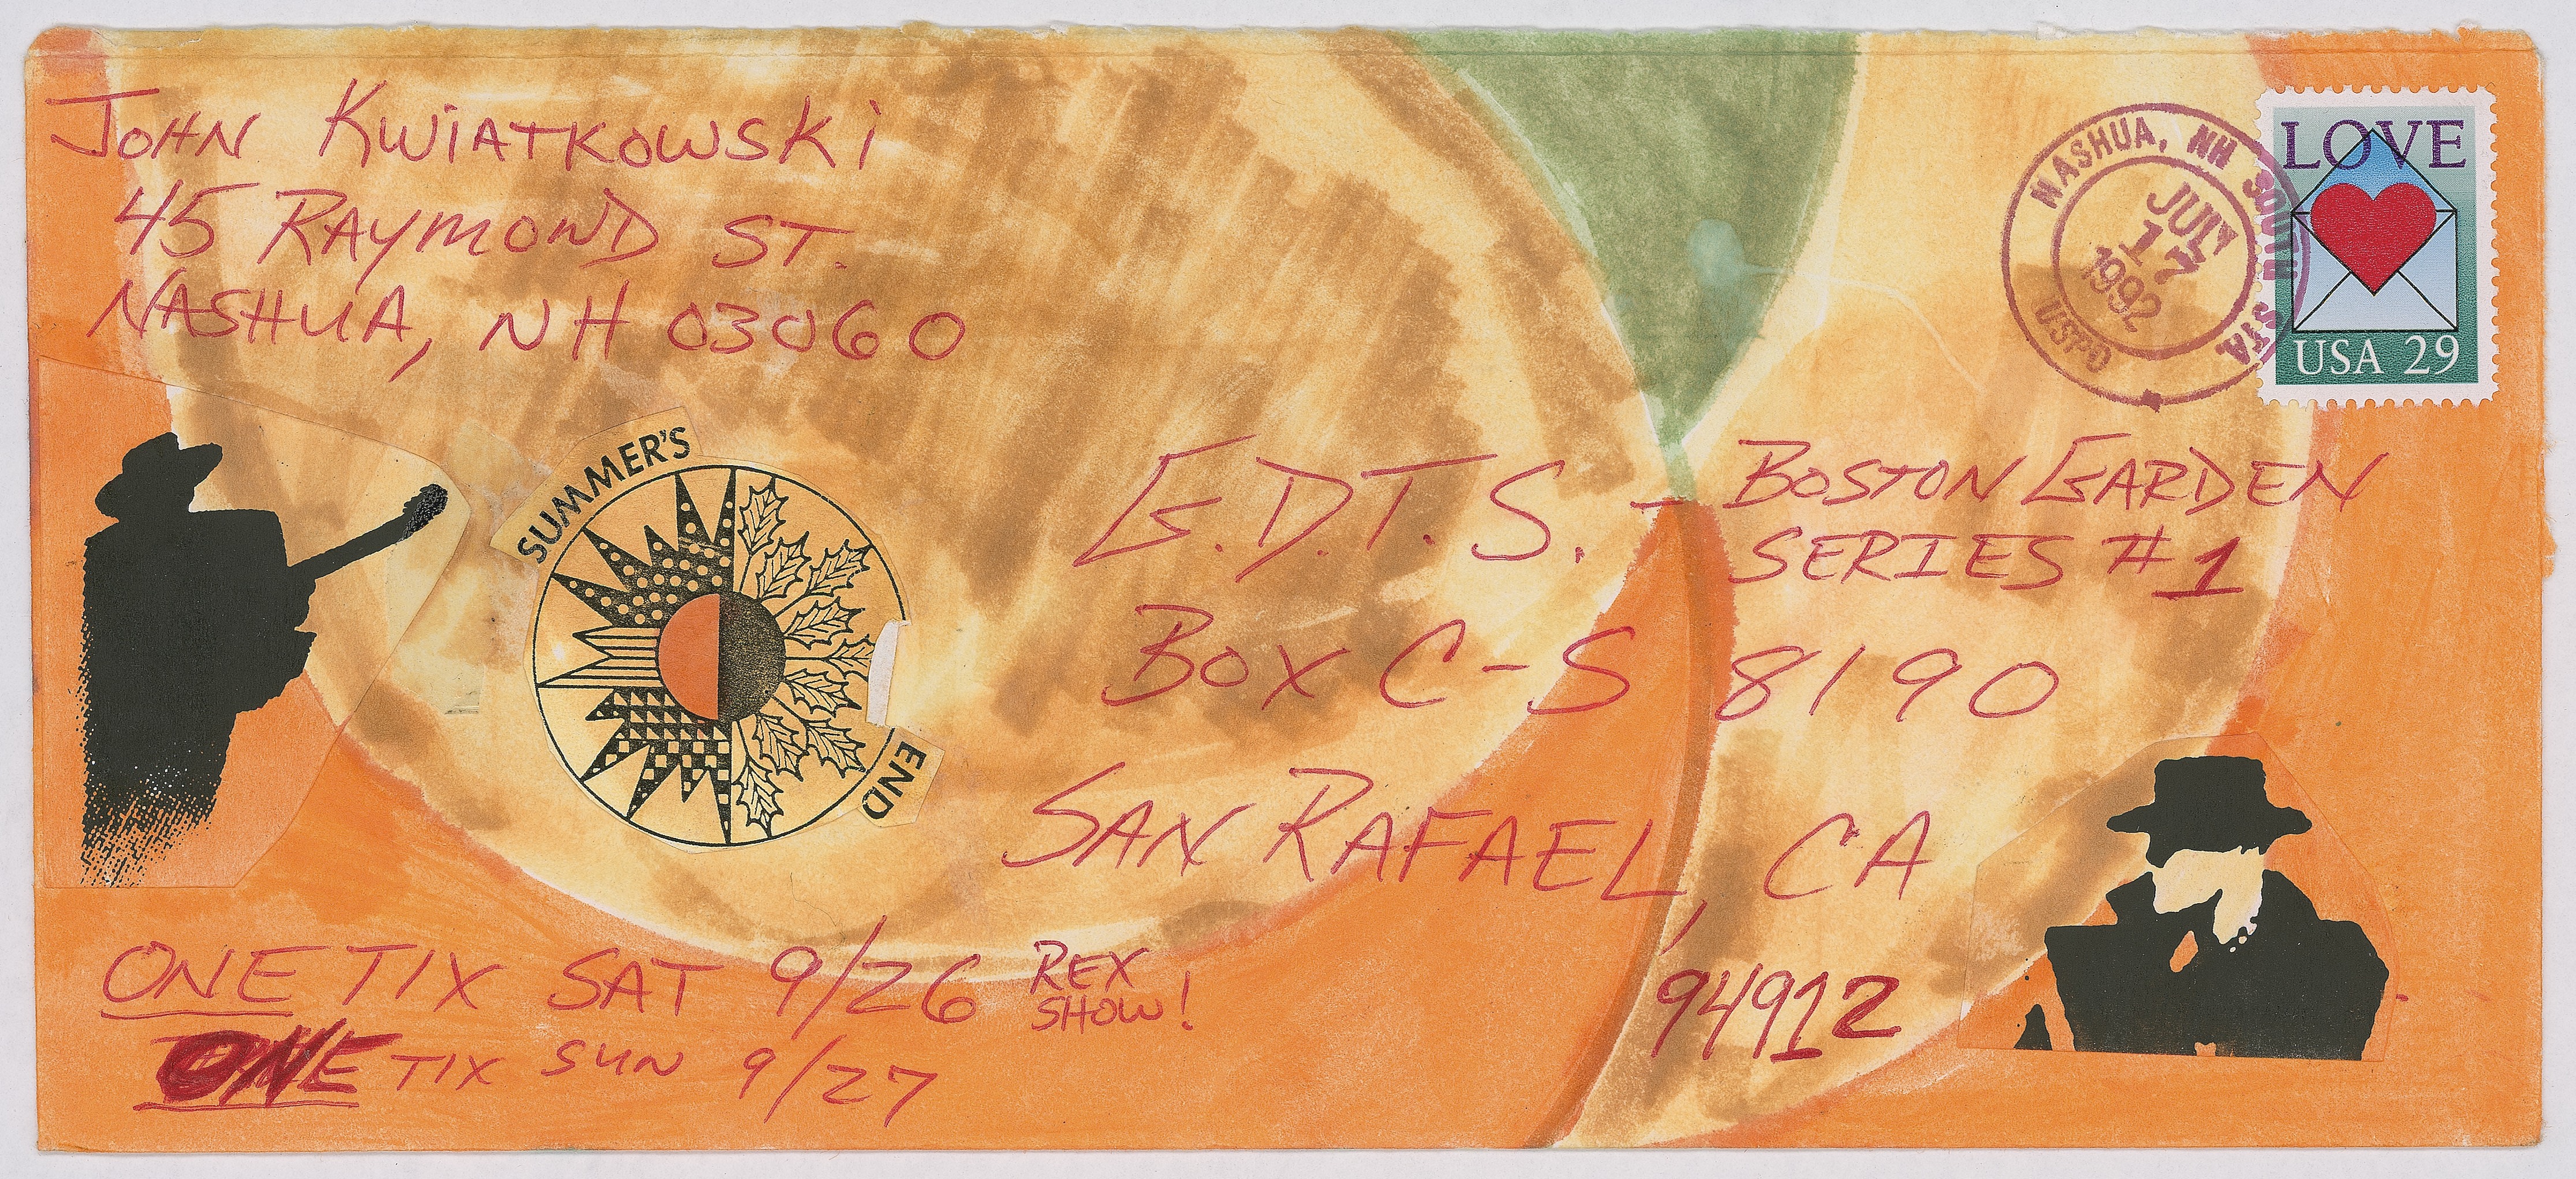 JOHN KWIATKOWSKI
45 RAYMOND ST.
NASHUA, NH 03060
NASHUA, NH SOUTH STA
JULY
17
1992
USPO
LOVE
USA 29
SUMMER'S
END
G.D.T.S. - BOSTON GARDEN
SERIES #1
BOX C-S 8190
SAN RAFAEL, CA
94912
ONE TIX SAT 9/26 REX
SHOW!
ONE TIX SUN 9/27